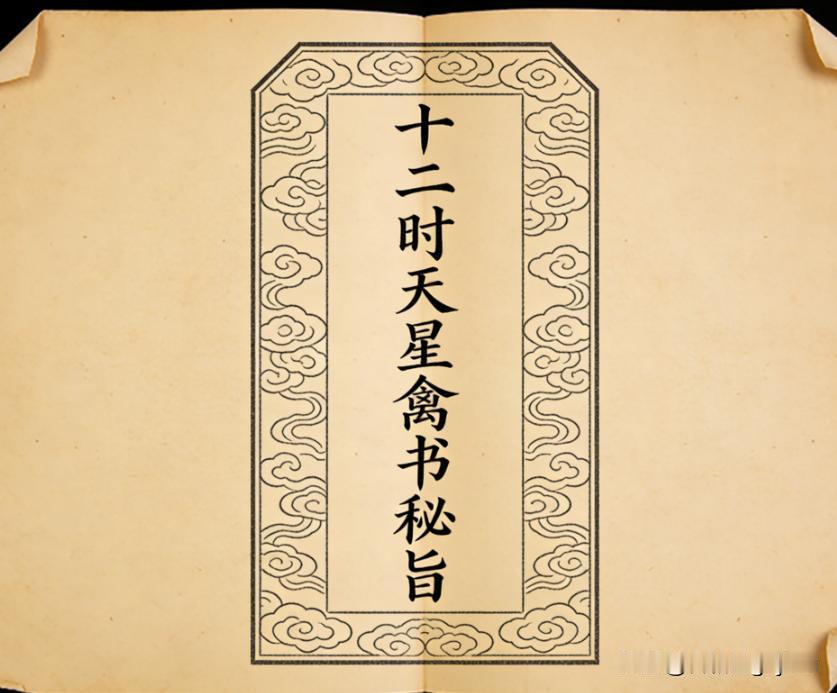 十二时天星禽书秘旨